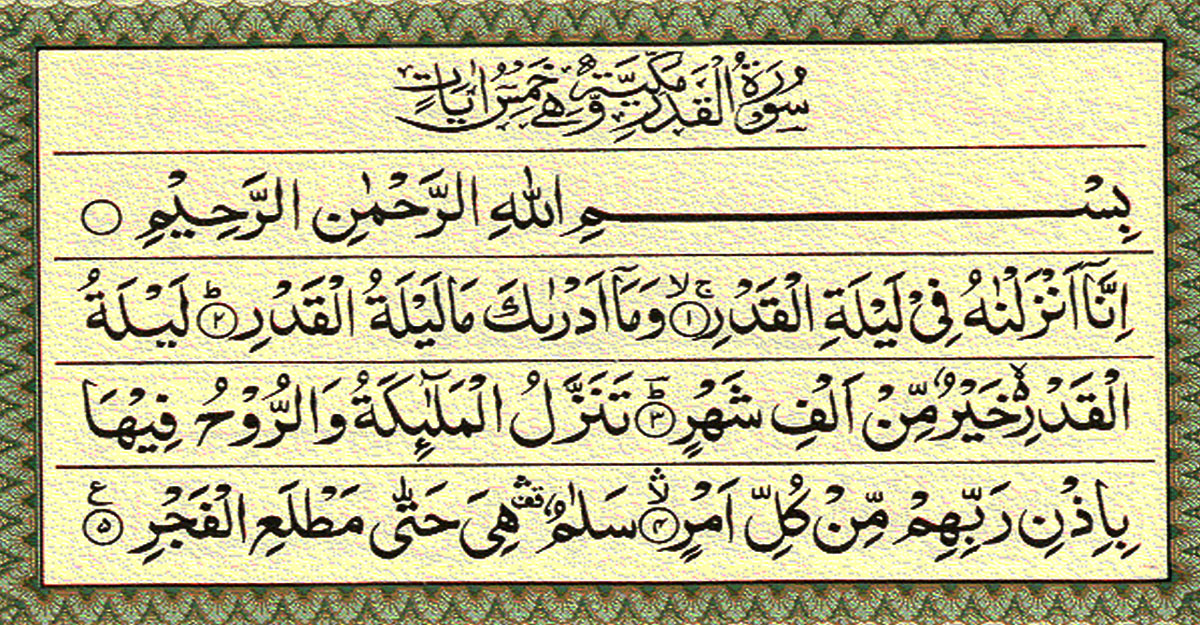 سُوْرَةُ الْقَدْرِ مَكِّيَّةٌ وَّهِيَ خَمْسُ اٰيَاتٍ
بِسْمِ اللّٰهِ الرَّحْمٰنِ الرَّحِيْمِ ۝
اِنَّاۤ اَنْزَلْنٰهُ فِيْ لَيْلَةِ الْقَدْرِ ۚۙ ۱ وَمَاۤ اَدْرٰىكَ مَا لَيْلَةُ الْقَدْرِ ؕ ۲ لَيْلَةُ
الْقَدْرِ ۙ خَيْرٌ مِّنْ اَلْفِ شَهْرٍ ؕ ۳ تَنَزَّلُ الْمَلٰٓئِكَةُ وَالرُّوْحُ فِيْهَا
بِاِذْنِ رَبِّهِمْ مِّنْ كُلِّ اَمْرٍ ۙۛ ۴ سَلٰمٌ ۛ قف هِيَ حَتّٰى مَطْلَعِ الْفَجْرِ ۵ ع